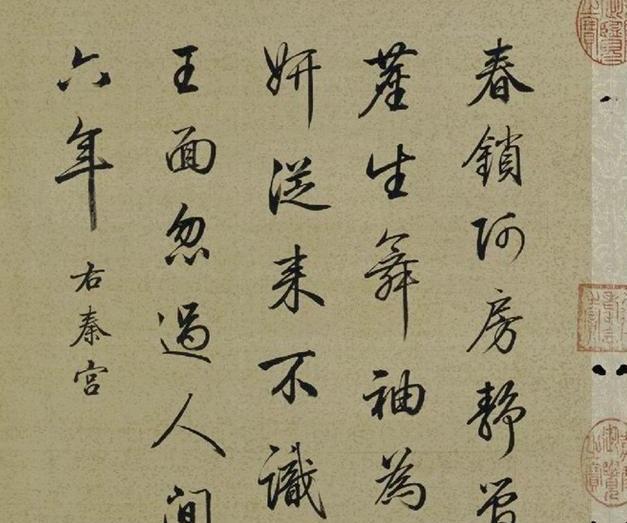 春鎖阿房靜
塵生舞袖為
妍從来不識
王面忽過人間
六年
右秦宮